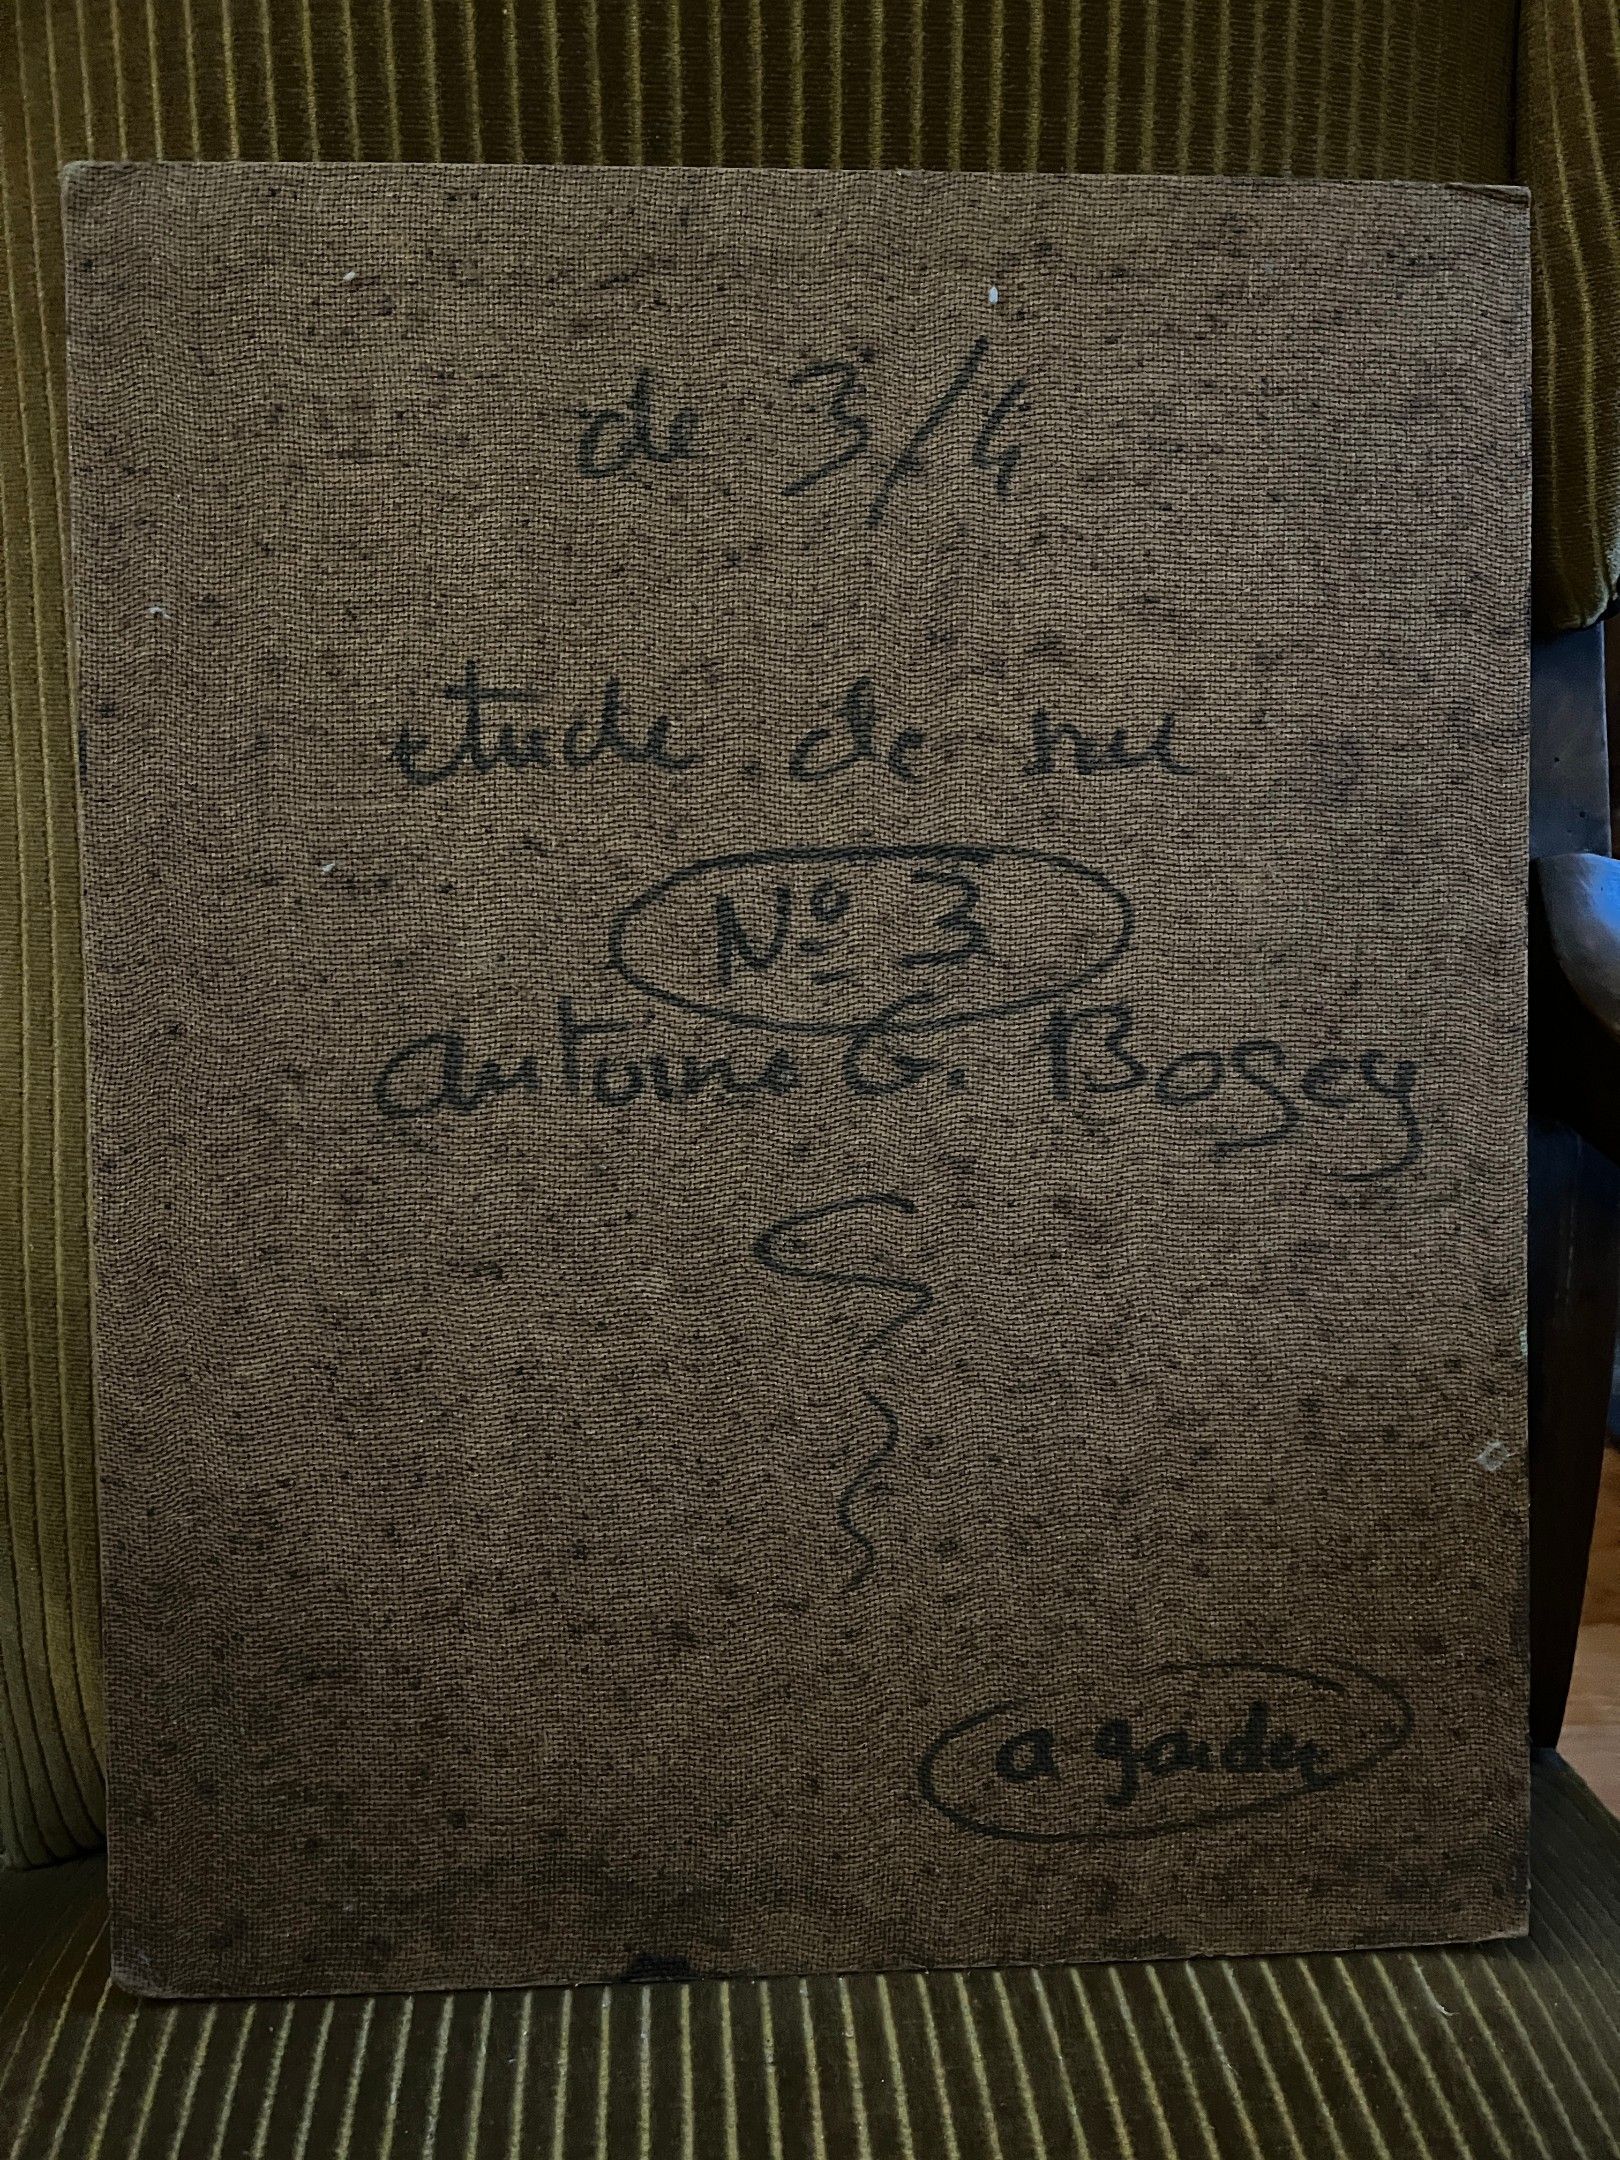 de 3/4
etude de nu
Nº 3
antoine G. Bogey
a garder